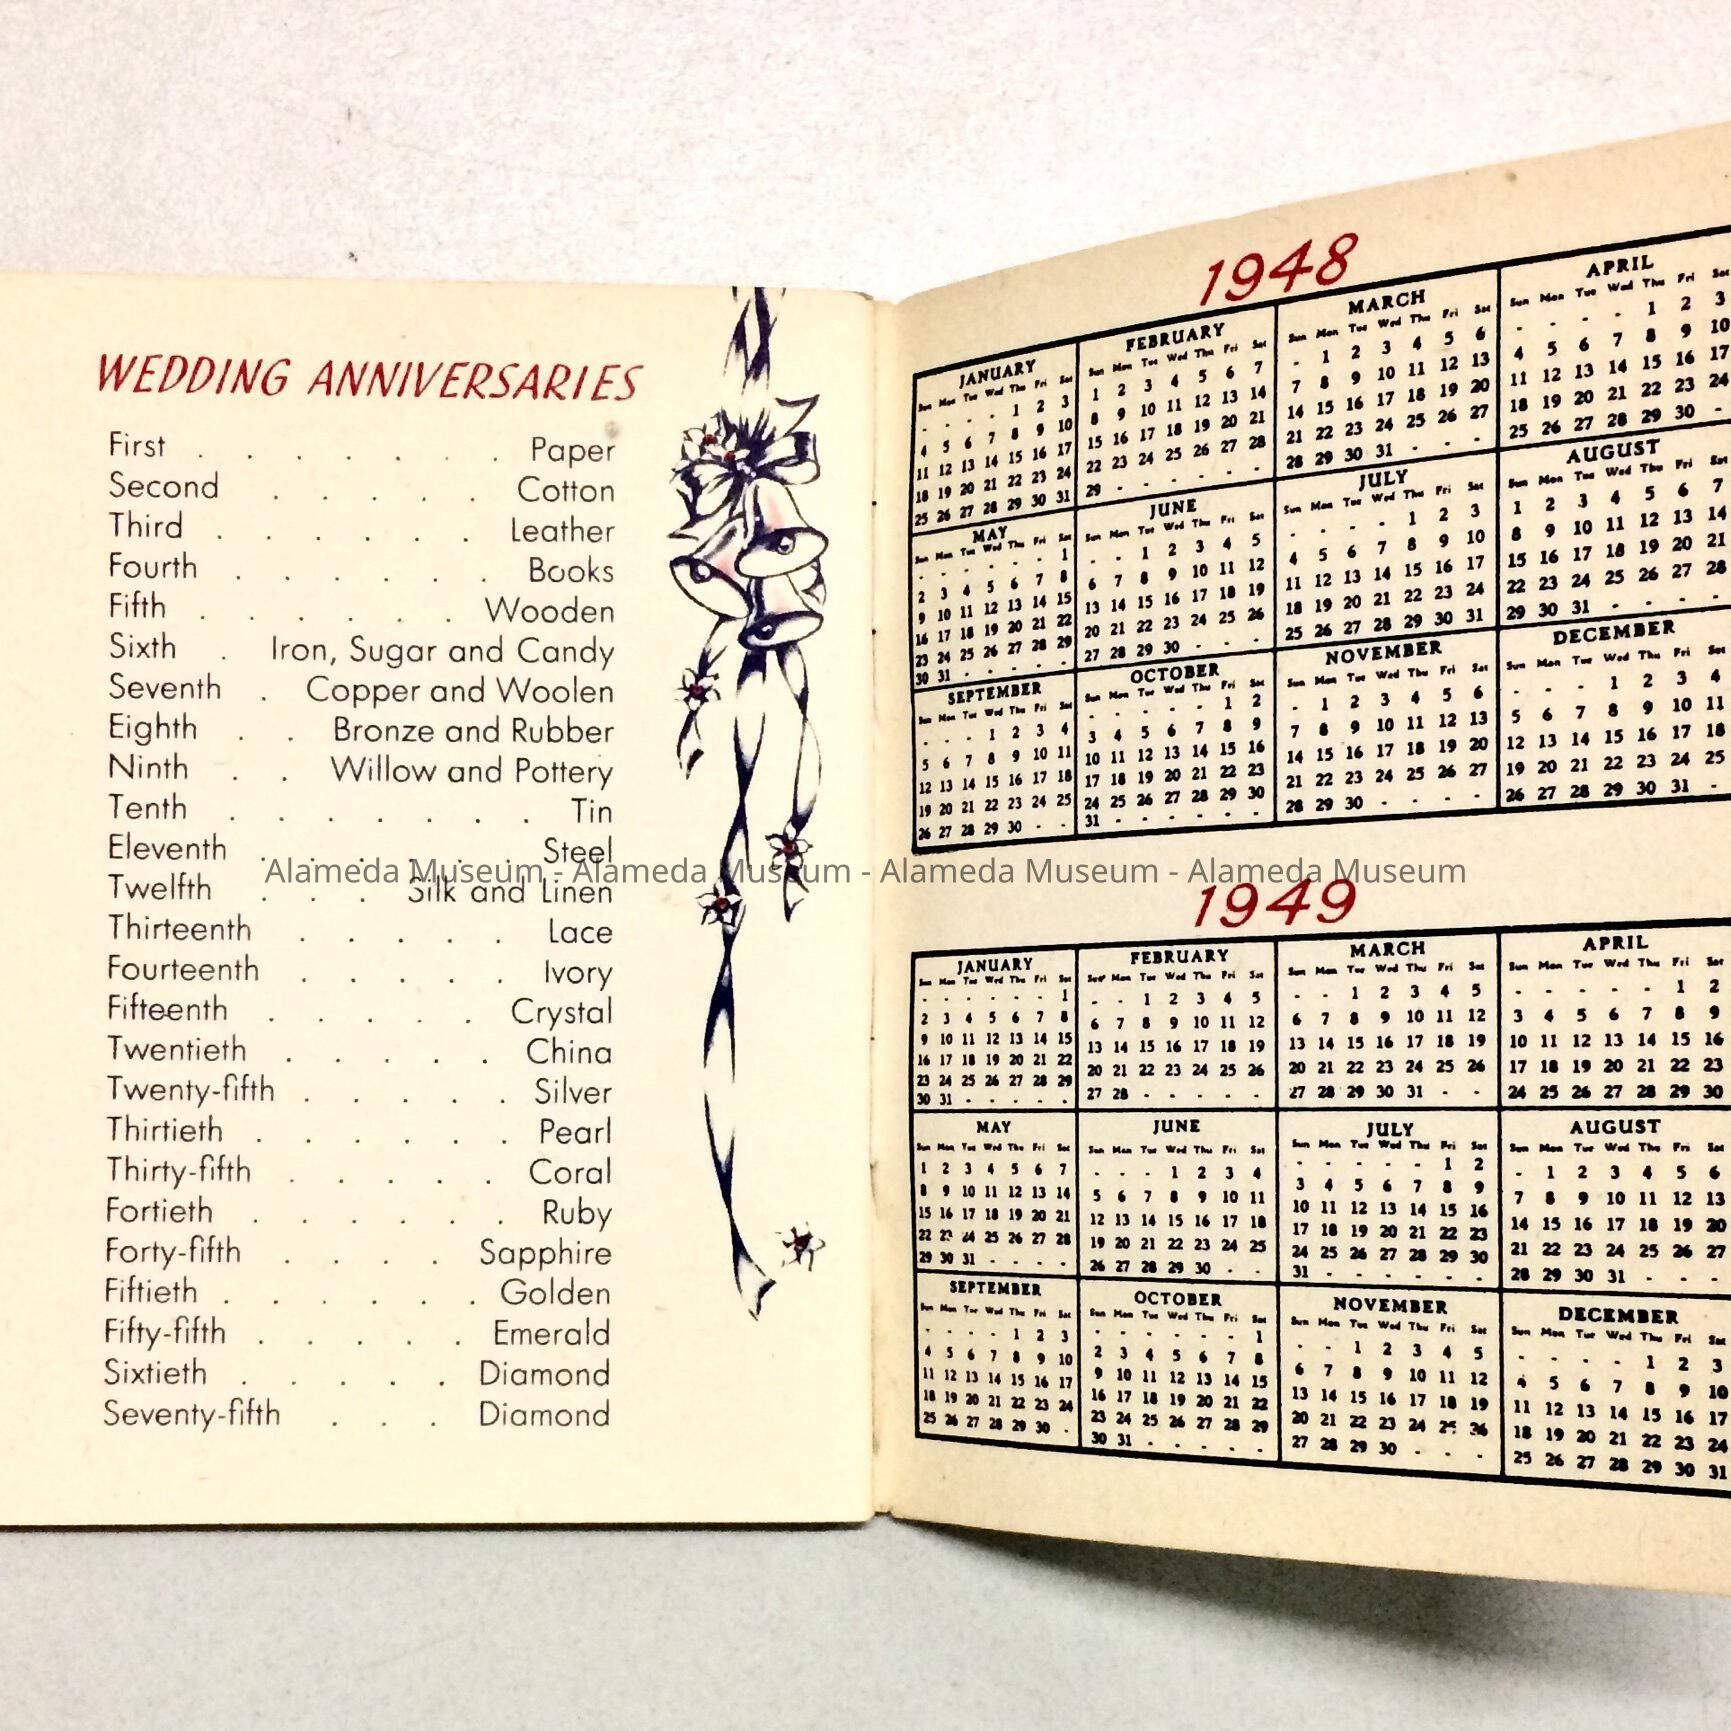 WEDDING ANNIVERSARIES
First . . . . . . . Paper
Second . . . . . Cotton
Third . . . . . . Leather
Fourth . . . . . . Books
Fifth . . . . . . Wooden
Sixth . Iron, Sugar and Candy
Seventh . Copper and Woolen
Eighth . . Bronze and Rubber
Ninth . . Willow and Pottery
Tenth . . . . . . . Tin
Eleventh . . . . . . Steel
Twelfth . . . Silk and Linen
Thirteenth . . . . . Lace
Fourteenth . . . . . Ivory
Fifteenth . . . . . Crystal
Twentieth . . . . . China
Twenty-fifth . . . . . Silver
Thirtieth . . . . . . Pearl
Thirty-fifth . . . . . Coral
Fortieth . . . . . . Ruby
Forty-fifth . . . . Sapphire
Fiftieth . . . . . . Golden
Fifty-fifth . . . . . Emerald
Sixtieth . . . . . Diamond
Seventy-fifth . . . Diamond
Alameda Museum - Alameda Museum - Alameda Museum - Alameda Museum
1948
JANUARY
Sun Mon Tue Wed Thu Fri Sat
- - - - 1 2 3
4 5 6 7 8 9 10
11 12 13 14 15 16 17
18 19 20 21 22 23 24
25 26 27 28 29 30 31
FEBRUARY
Sun Mon Tue Wed Thu Fri Sat
1 2 3 4 5 6 7
8 9 10 11 12 13 14
15 16 17 18 19 20 21
22 23 24 25 26 27 28
29 - - - - - -
MARCH
Sun Mon Tue Wed Thu Fri Sat
- 1 2 3 4 5 6
7 8 9 10 11 12 13
14 15 16 17 18 19 20
21 22 23 24 25 26 27
28 29 30 31 - - -
APRIL
Sun Mon Tue Wed Thu Fri Sat
- - - - 1 2 3
4 5 6 7 8 9 10
11 12 13 14 15 16 17
18 19 20 21 22 23 24
25 26 27 28 29 30 -
MAY
Sun Mon Tue Wed Thu Fri Sat
- - - - - - 1
2 3 4 5 6 7 8
9 10 11 12 13 14 15
16 17 18 19 20 21 22
23 24 25 26 27 28 29
30 31 - - - - -
JUNE
Sun Mon Tue Wed Thu Fri Sat
- - 1 2 3 4 5
6 7 8 9 10 11 12
13 14 15 16 17 18 19
20 21 22 23 24 25 26
27 28 29 30 - - -
JULY
Sun Mon Tue Wed Thu Fri Sat
- - - - 1 2 3
4 5 6 7 8 9 10
11 12 13 14 15 16 17
18 19 20 21 22 23 24
25 26 27 28 29 30 31
AUGUST
Sun Mon Tue Wed Thu Fri Sat
1 2 3 4 5 6 7
8 9 10 11 12 13 14
15 16 17 18 19 20 21
22 23 24 25 26 27 28
29 30 31 - - - -
SEPTEMBER
Sun Mon Tue Wed Thu Fri Sat
- - - 1 2 3 4
5 6 7 8 9 10 11
12 13 14 15 16 17 18
19 20 21 22 23 24 25
26 27 28 29 30 - -
OCTOBER
Sun Mon Tue Wed Thu Fri Sat
- - - - - 1 2
3 4 5 6 7 8 9
10 11 12 13 14 15 16
17 18 19 20 21 22 23
24 25 26 27 28 29 30
31 - - - - - -
NOVEMBER
Sun Mon Tue Wed Thu Fri Sat
- 1 2 3 4 5 6
7 8 9 10 11 12 13
14 15 16 17 18 19 20
21 22 23 24 25 26 27
28 29 30 - - - -
DECEMBER
Sun Mon Tue Wed Thu Fri Sat
- - - 1 2 3 4
5 6 7 8 9 10 11
12 13 14 15 16 17 18
19 20 21 22 23 24 25
26 27 28 29 30 31 -
1949
JANUARY
Sun Mon Tue Wed Thu Fri Sat
- - - - - - 1
2 3 4 5 6 7 8
9 10 11 12 13 14 15
16 17 18 19 20 21 22
23 24 25 26 27 28 29
30 31 - - - - -
FEBRUARY
Sun Mon Tue Wed Thu Fri Sat
- - 1 2 3 4 5
6 7 8 9 10 11 12
13 14 15 16 17 18 19
20 21 22 23 24 25 26
27 28 - - - - -
MARCH
Sun Mon Tue Wed Thu Fri Sat
- - 1 2 3 4 5
6 7 8 9 10 11 12
13 14 15 16 17 18 19
20 21 22 23 24 25 26
27 28 29 30 31 - -
APRIL
Sun Mon Tue Wed Thu Fri Sat
- - - - - 1 2
3 4 5 6 7 8 9
10 11 12 13 14 15 16
17 18 19 20 21 22 23
24 25 26 27 28 29 30
MAY
Sun Mon Tue Wed Thu Fri Sat
1 2 3 4 5 6 7
8 9 10 11 12 13 14
15 16 17 18 19 20 21
22 23 24 25 26 27 28
29 30 31 - - - -
JUNE
Sun Mon Tue Wed Thu Fri Sat
- - - 1 2 3 4
5 6 7 8 9 10 11
12 13 14 15 16 17 18
19 20 21 22 23 24 25
26 27 28 29 30 - -
JULY
Sun Mon Tue Wed Thu Fri Sat
- - - - - 1 2
3 4 5 6 7 8 9
10 11 12 13 14 15 16
17 18 19 20 21 22 23
24 25 26 27 28 29 30
31 - - - - - -
AUGUST
Sun Mon Tue Wed Thu Fri Sat
- 1 2 3 4 5 6
7 8 9 10 11 12 13
14 15 16 17 18 19 20
21 22 23 24 25 26 27
28 29 30 31 - - -
SEPTEMBER
Sun Mon Tue Wed Thu Fri Sat
- - - - 1 2 3
4 5 6 7 8 9 10
11 12 13 14 15 16 17
18 19 20 21 22 23 24
25 26 27 28 29 30 -
OCTOBER
Sun Mon Tue Wed Thu Fri Sat
- - - - - - 1
2 3 4 5 6 7 8
9 10 11 12 13 14 15
16 17 18 19 20 21 22
23 24 25 26 27 28 29
30 31 - - - - -
NOVEMBER
Sun Mon Tue Wed Thu Fri Sat
- - 1 2 3 4 5
6 7 8 9 10 11 12
13 14 15 16 17 18 19
20 21 22 23 24 25 26
27 28 29 30 - - -
DECEMBER
Sun Mon Tue Wed Thu Fri Sat
- - - - 1 2 3
4 5 6 7 8 9 10
11 12 13 14 15 16 17
18 19 20 21 22 23 24
25 26 27 28 29 30 31